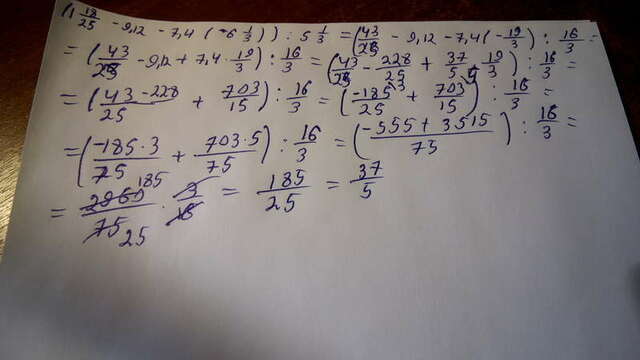 (1 18/25 - 9,12 - 7,4 (-6 1/3)) : 5 1/3 = (43/25 - 9,12 - 7,4 (-19/3) : 16/3 =
= (43/25 - 9,12 + 7,4 · 19/3) : 16/3 = (43/25 - 228/25 + 37/5 · 19/3) : 16/3 =
= (43-228/25 + 703/15) : 16/3 = (-185/25 + 703/15) : 16/3 =
= (-185·3/75 + 703·5/75) : 16/3 = (-555 + 3515/75) : 16/3 =
= 2960/75 · 3/16 = 185/25 = 37/5